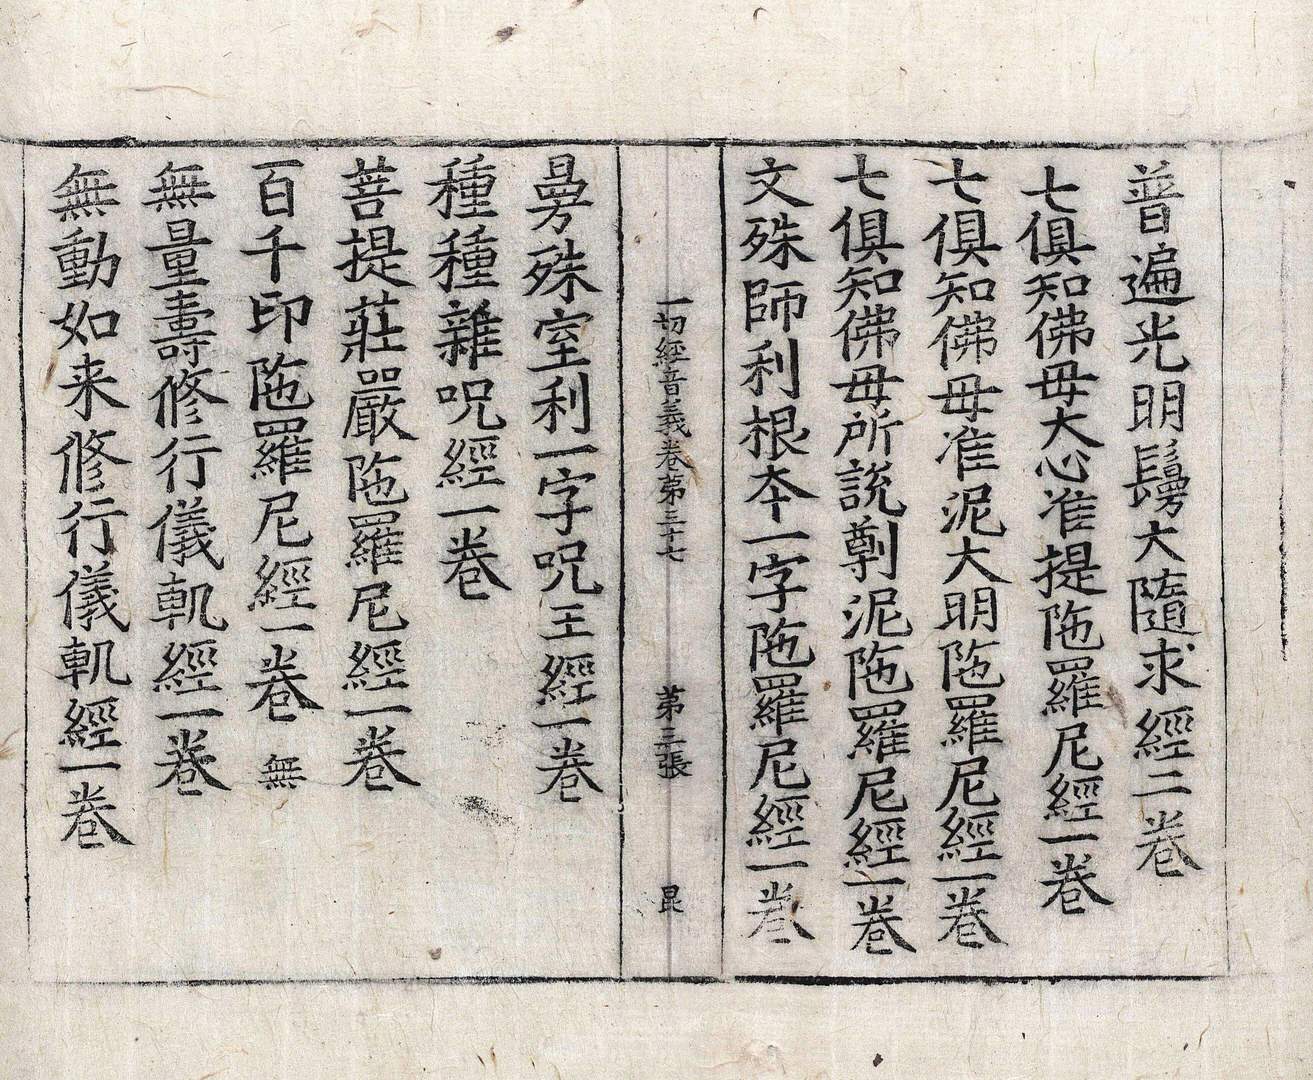 普遍光明鬘大隨求經二卷
七俱知佛母大心准提陁羅尼經一卷
七俱知佛母准泥大明陁羅尼經一卷
七俱知佛母所說准泥陁羅尼經一卷
文殊師利根夲一字陁羅尼經一卷
一切經音義卷第三十七 第三張 昆
曼殊室利一字呪王經一卷
種種雜呪經一卷
菩提莊嚴陁羅尼經一卷
百千印陁羅尼經一卷 無
無量壽修行儀軌經一卷
無動如来修行儀軌經一卷